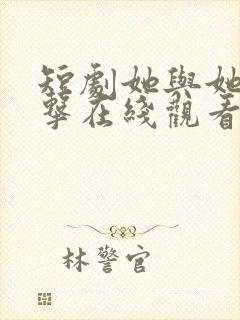 短劇她與她
擊在綫觀看
林警官